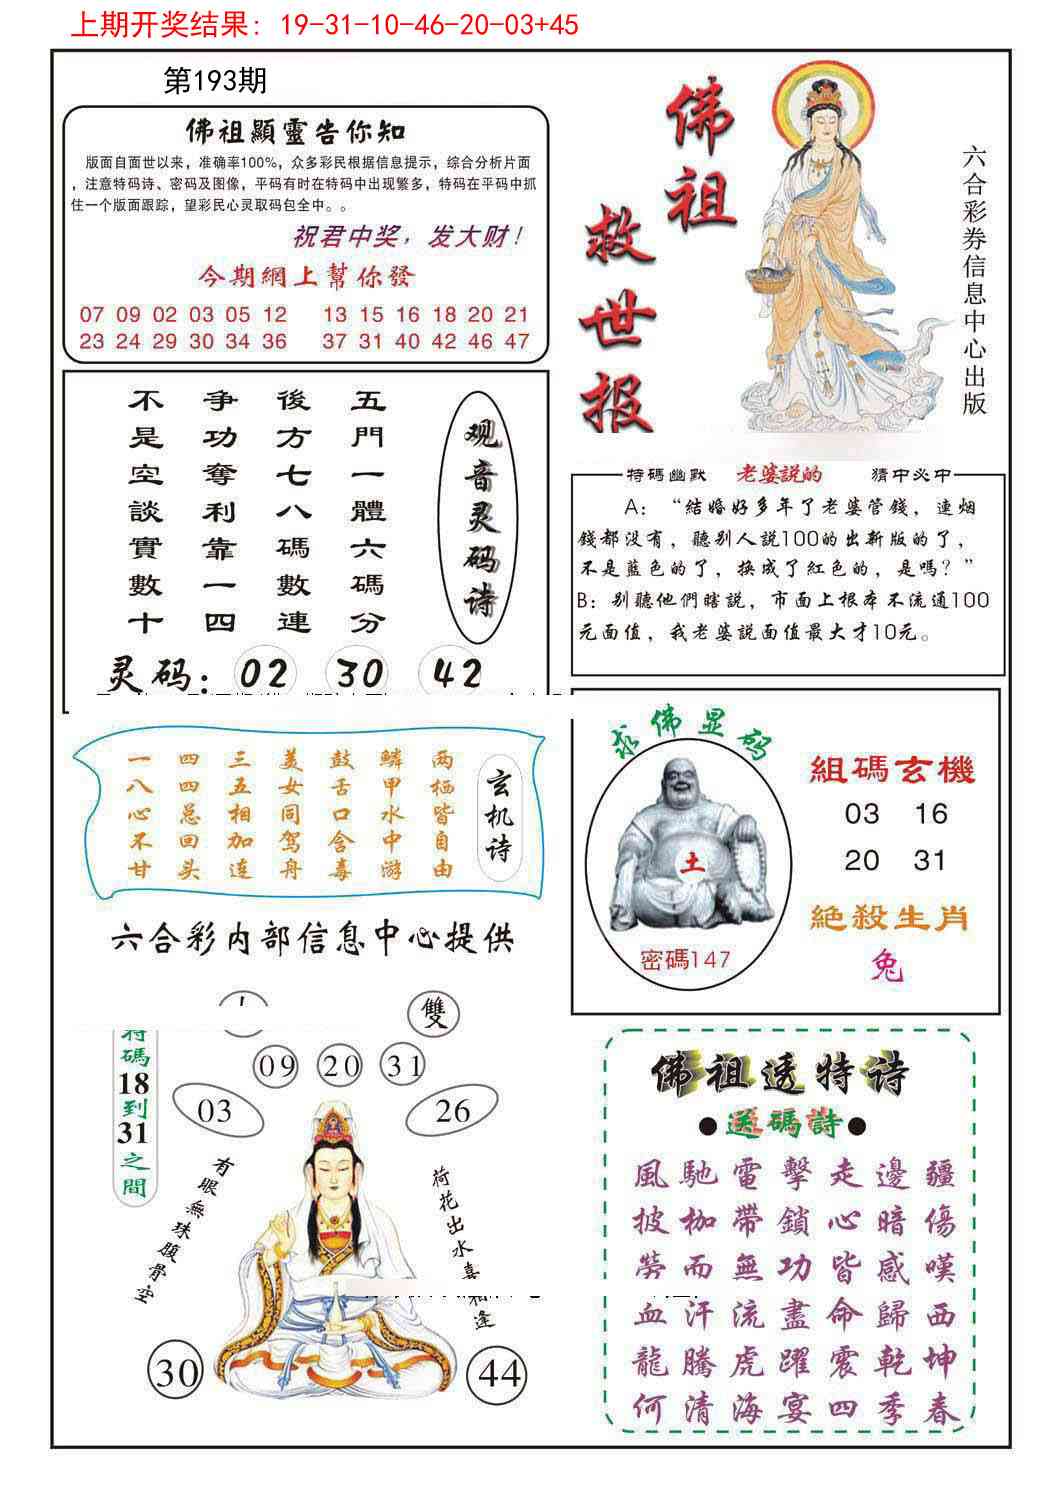 上期开奖结果：19-31-10-46-20-03+45
第193期
佛祖顯靈告你知
版面自面世以来，准确率100%，众多彩民根据信息提示，综合分析片面
，注意特码诗、密码及图像，平码有时在特码中出现繁多，特码在平码中抓
住一个版面跟踪，望彩民心灵取码包全中。。
祝君中奖，发大财！
今期網上幫你發
07 09 02 03 05 12 13 15 16 18 20 21
23 24 29 30 34 36 37 31 40 42 46 47
佛祖
救世报
六合彩券信息中心出版
观音灵码诗
五門一體六碼分
後方七八碼數連
争功奪利靠一四
不是空談實數十
灵码：02 30 42
特碼幽默 老婆説的 猜中必中
A：“結婚好多年了老婆管錢，連烟
錢都没有，聽别人説100的出新版的了，
不是藍色的了，换成了紅色的，是嗎？”
B：别聽他們瞎説，市面上根本不流通100
元面值，我老婆説面值最大才10元。
玄机诗
两栖皆自由
鳞甲水中游
鼓舌口含毒
美女同驾舟
三五相加连
四四总回头
一八心不甘
六合彩内部信息中心提供
求佛显码
土
密碼147
組碼玄機
03 16
20 31
絶殺生肖
兔
雙
特碼18到31之間
09 20 31
03 26
有眼無珠腹骨空
荷花出水喜相逢
30 44
佛祖透特诗
●送碼詩●
風馳電擊走邊疆
披枷帶鎖心暗傷
勞而無功皆感嘆
血汗流盡命歸西
龍騰虎躍震乾坤
何清海宴四季春